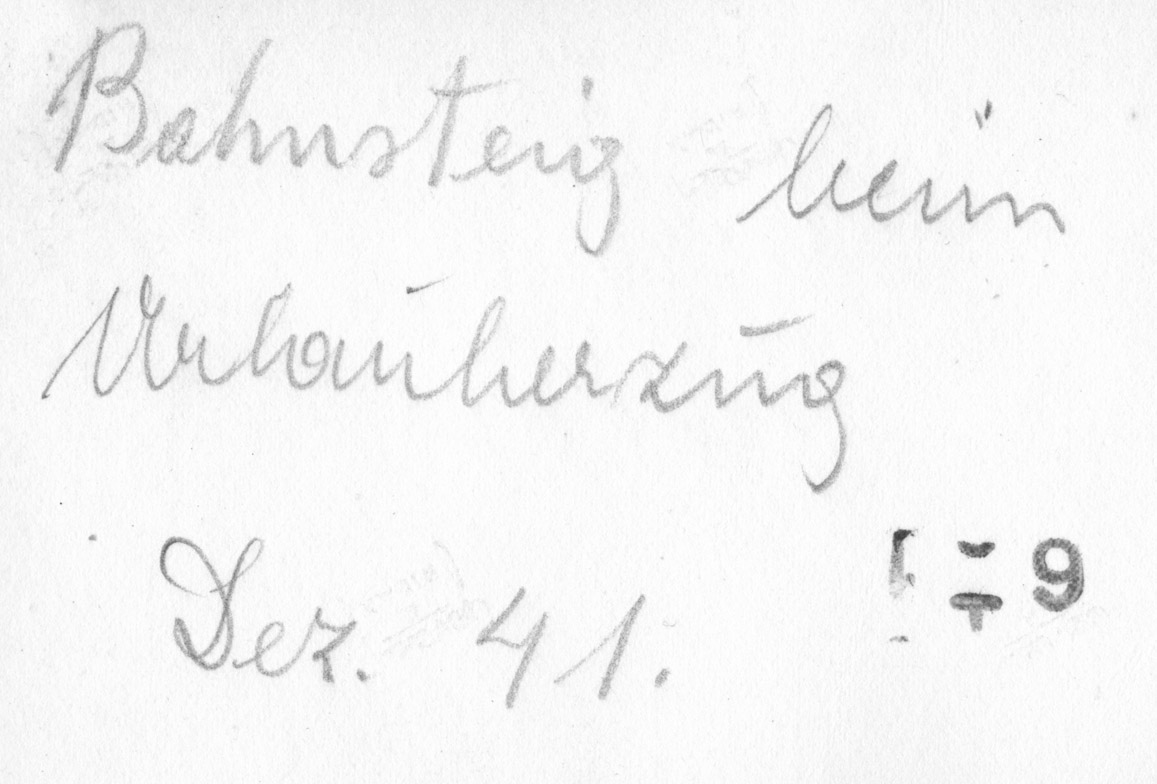 Bahnsteig beim
Urlauberzug
Dez. 41.
9